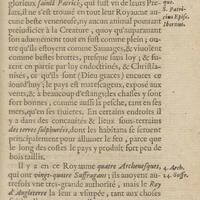 glorieux Sainct Patrice, qui fust un de leurs Pre-
lats, il ne s'y treuve en tout leur Royaume au-
cune beste veneneuse, ny aucun animal pouvant
prejudicier à la Creature, quoy qu'auparavant
son advenement tout en fust comme plein; ou-
tre qu'ils estoyent comme Sauvages, & vivoient
comme bestes brottes, presque sans loy; & fu-
rent en partie par luy endoctrinés, & Christia-
nisés, ce qu'ils sont (Dieu graces) encores ce
jourd'huy; le pays est fort saffisant, exposé aux
vents, & a beaucoup d'estangs; les chasses y sont
fort bonnes, comme aussi la pesche, tant en ses
mers, qu'en ses fleuves. En certains endroits il
y a dans des concavités & lieux sous-terrains
des terres sulphurées, dont les habitans se servent
principalement pour allumer le feu, parce que
le bois couste en ce pays y produit fort peu de
bois taillis.
Il y a en ce Royaume quatre Archevesques,
qui ont vingt-quatre Suffragans; ils avoyent au-
trefois une tres-grande authorité, mais le Roy
d'Angleterre la leur a usurpée, tant aux choses
que.
S. Patri-
ce Episc.
Ibernus.
4. Arch.
24. Suffr.